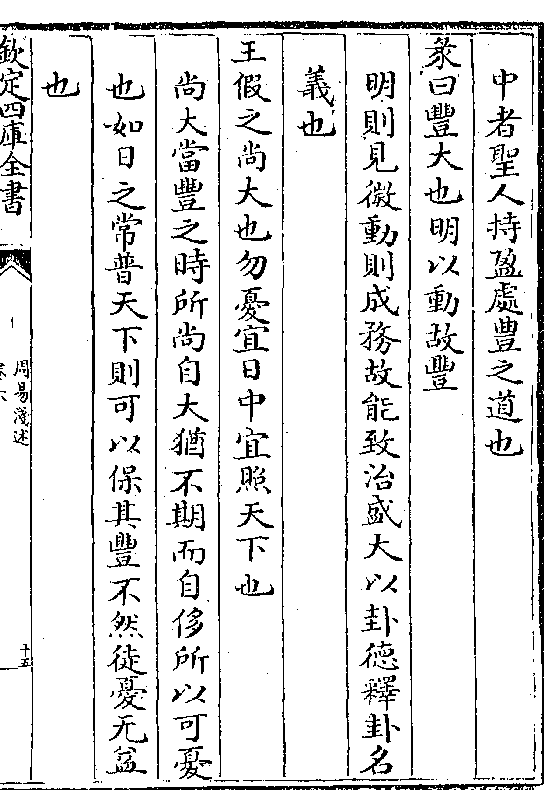 中者聖人持盈處豐之道也
彖曰豐大也明以動故豐
明則見微動則成務故能致治盛大以卦德釋卦名
義也
王假之尚大也勿憂宜日中宜照天下也
尚大當豐之時所尚自大猶不期而自侈所以可憂
也如日之常普天下則可以保其豐不然徒憂无益
也
欽定四庫全書
周易淺述
十五